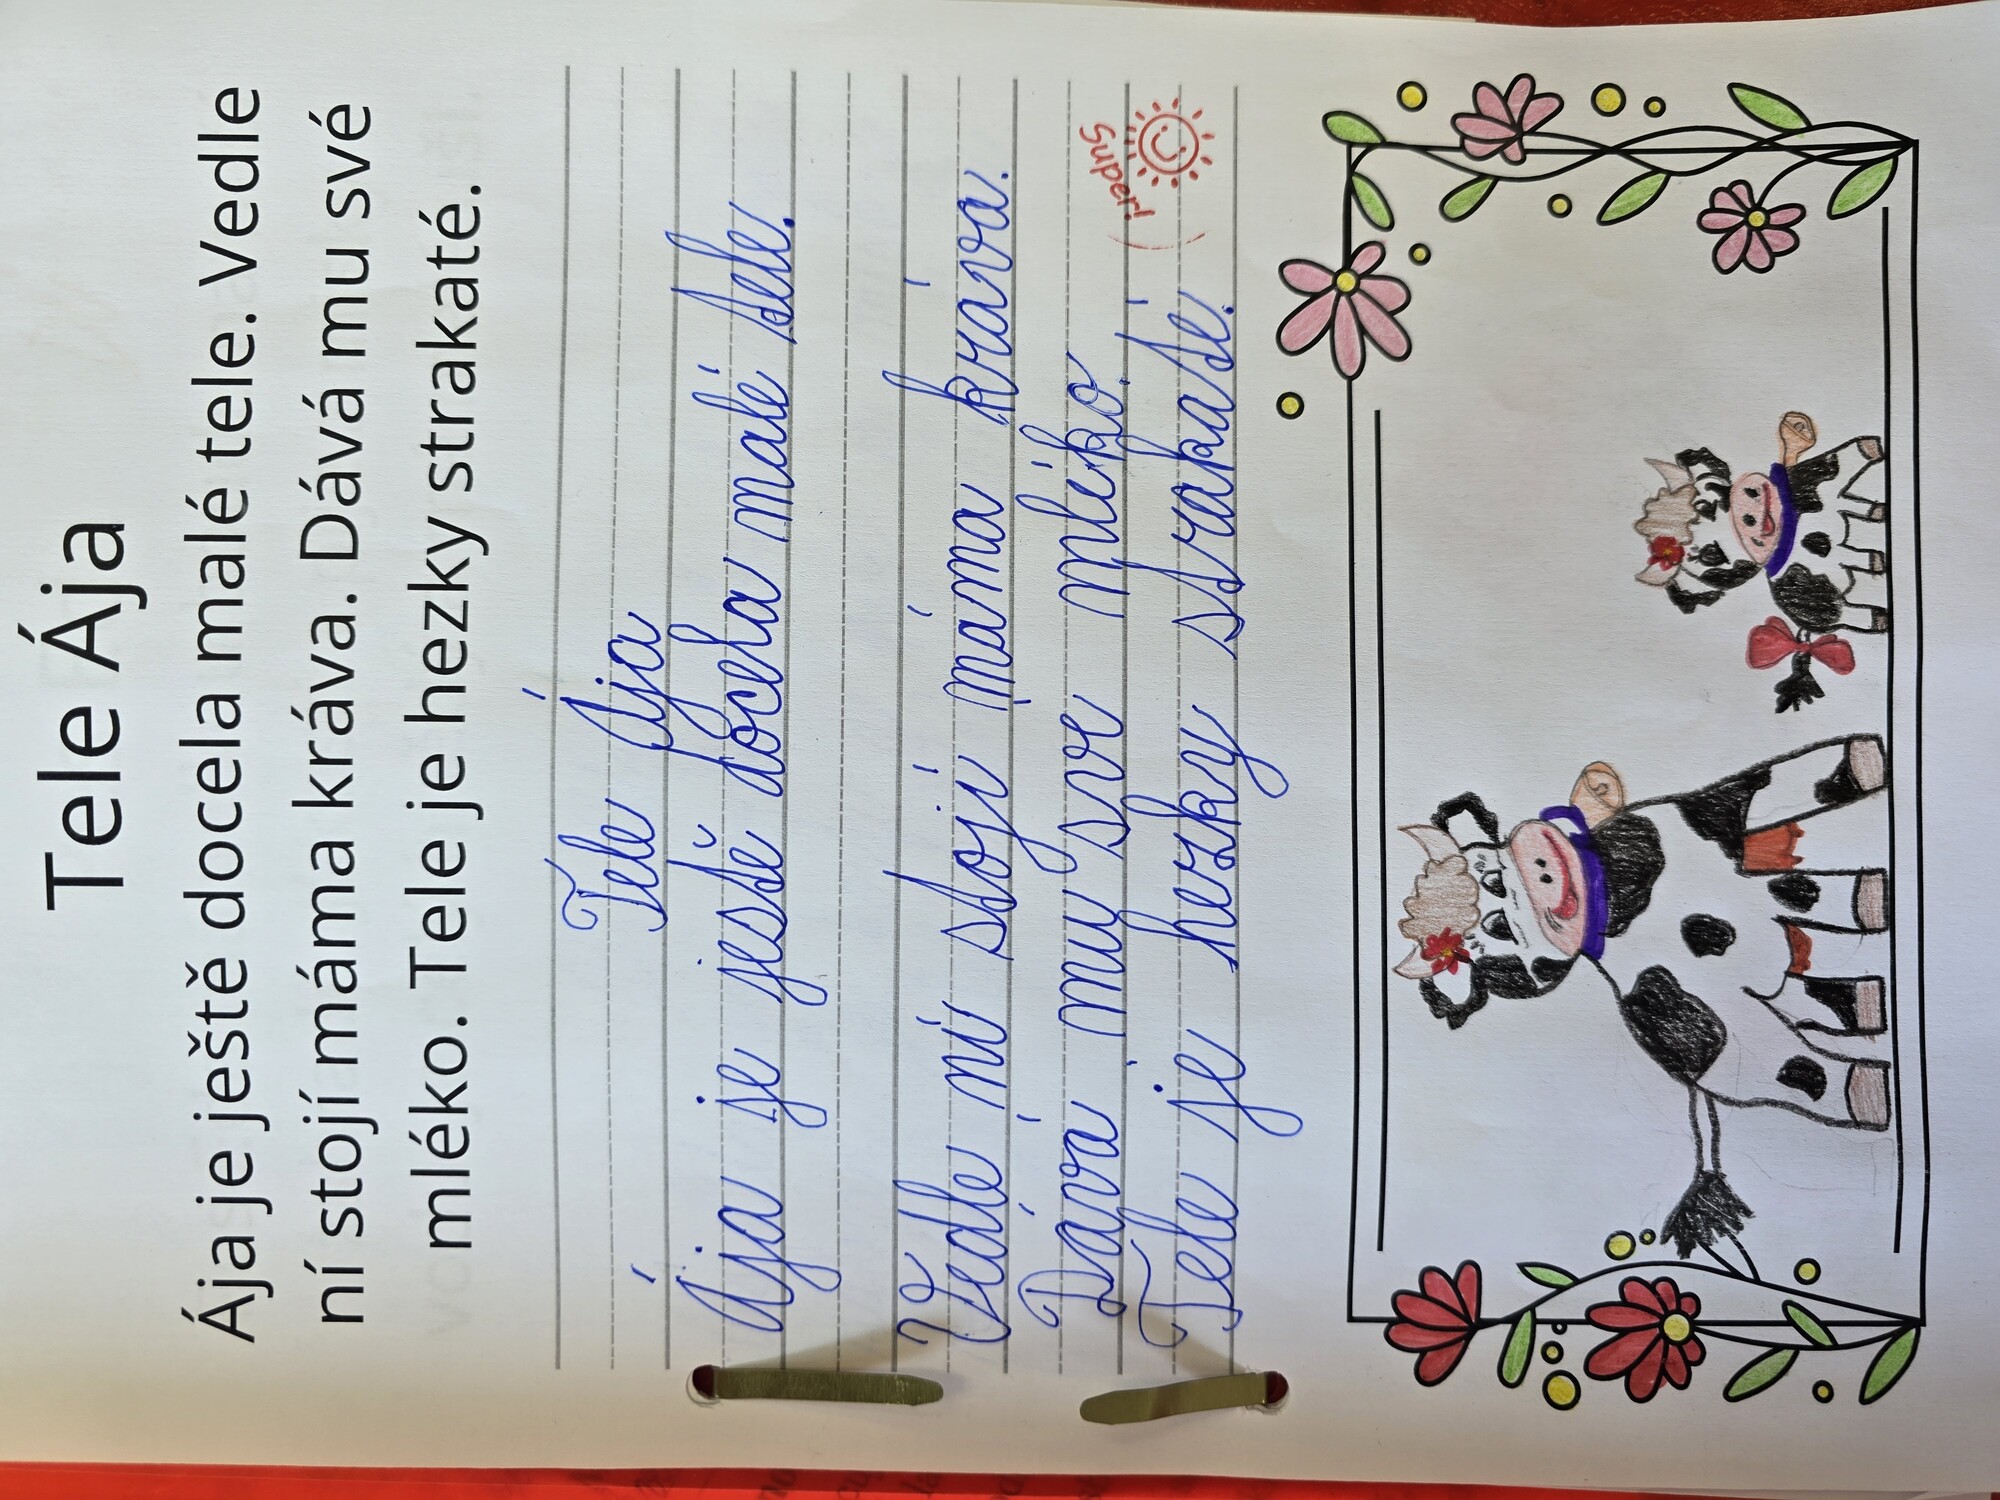 Tele Ája
Ája je ještě docela malé tele. Vedle
ní stojí máma kráva. Dává mu své
mléko. Tele je hezky strakaté.
Tele Ája
Ája je ještě docela malé tele.
Vedle ní stojí máma kráva.
Dává mu sve mléko.
Tele je hezky strakaté.
Super!